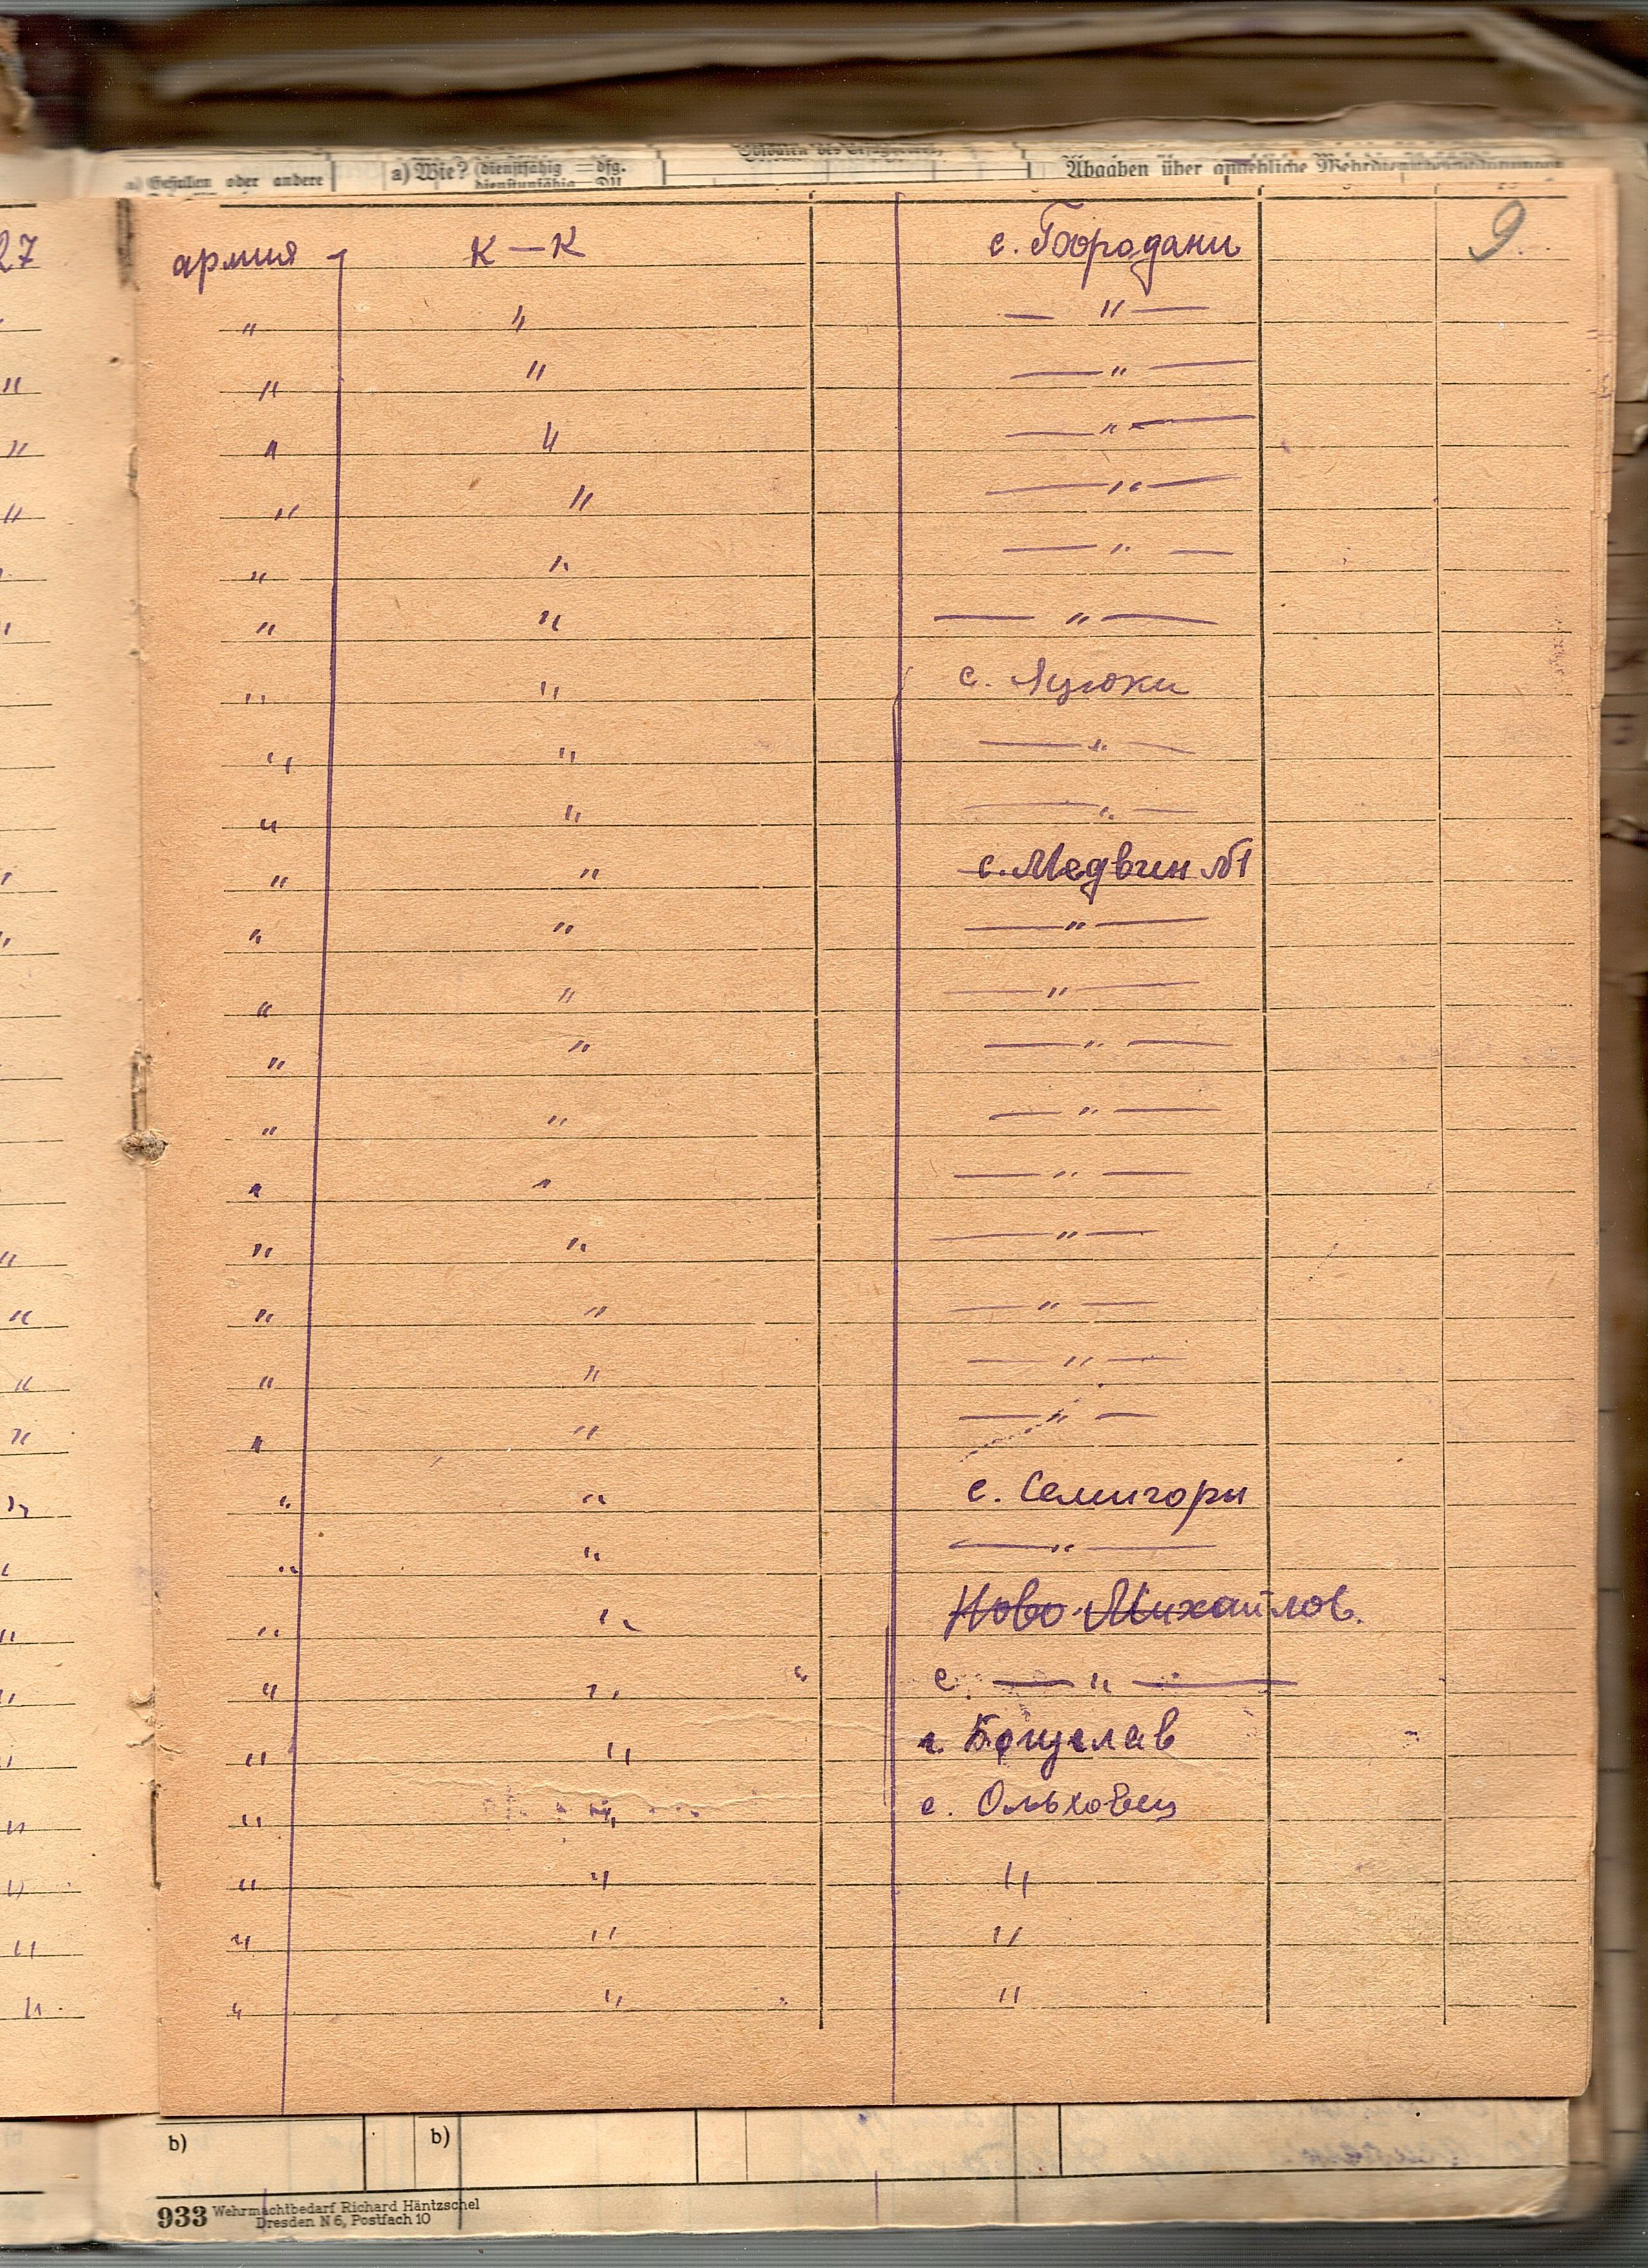 a) Gefallen oder andere a) Wie? (dienstfähig = dfg. Abgaben über
dienstunfähig
27 армия К — К с. Бородани 9.
" " — " —
" " — " —
" " — " —
" " — " —
" " — " —
" " — " —
" " с.
" " — " —
" " — " —
" " с. Медвин №1
" " — " —
" " — " —
" " — " —
" " — " —
" " — " —
" " — " —
" " — " —
" " — " —
" " — " —
" " с. Семигоры
" " — " —
" " Ново-Михайлов.
" " с. — " —
" " г. Богуслав
" " с. Ольховец
" " "
" " "
" " "
b) b)
933 Wehrmachtbedarf Richard Häntzschel
Dresden N 6, Postfach 10